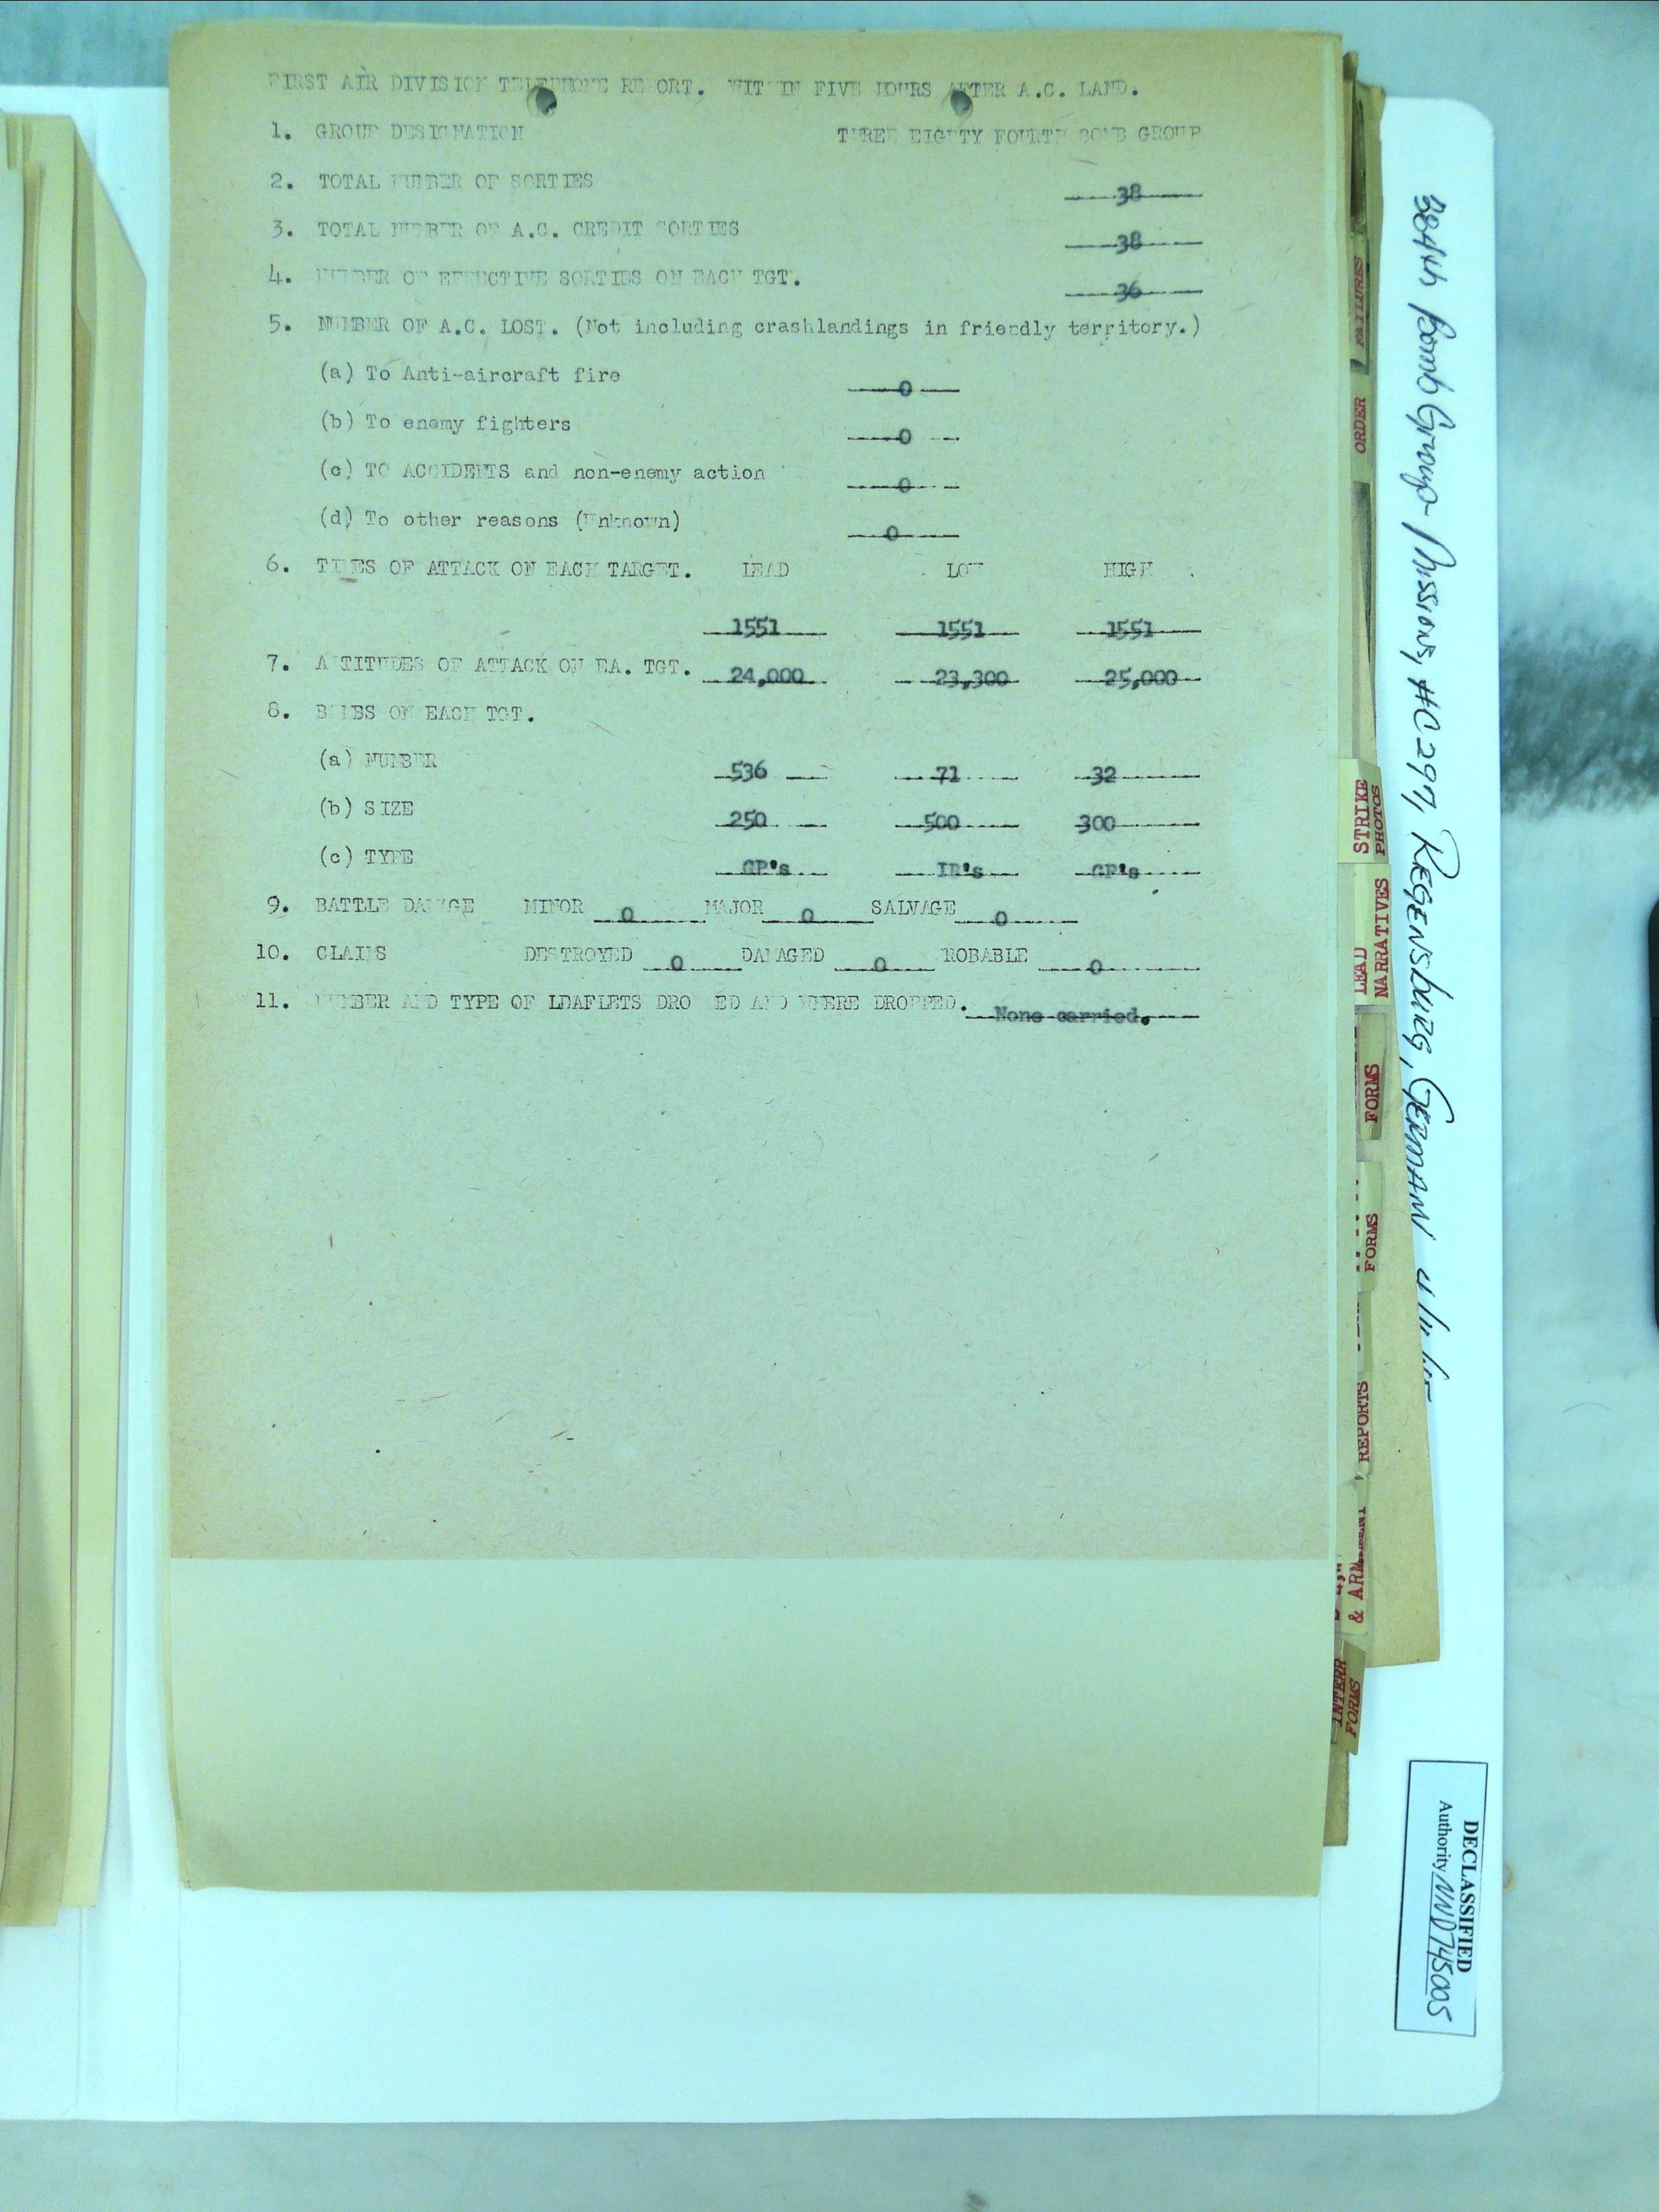 FIRST AIR DIVISION TELEPHONE REPORT. WITHIN FIVE HOURS AFTER A.C. LAND.
1. GROUP DESIGNATION THREE EIGHTY FOURTH BOMB GROUP
2. TOTAL NUMBER OF SORTIES 38
3. TOTAL NUMBER OF A.C. CREDIT SORTIES 38
4. NUMBER OF EFFECTIVE SORTIES ON EACH TGT. 36
5. NUMBER OF A.C. LOST. (Not including crashlandings in friendly territory.)
(a) To Anti-aircraft fire 0
(b) To enemy fighters 0
(c) TO ACCIDENTS and non-enemy action 0
(d) To other reasons (Unknown) 0
6. TIMES OF ATTACK ON EACH TARGET. LEAD LOW HIGH
1551 1551 1551
7. ALTITUDES OF ATTACK ON EA. TGT. 24,000 23,300 25,000
8. BOMBS ON EACH TGT.
(a) NUMBER 536 71 32
(b) SIZE 250 500 300
(c) TYPE GP's IB's GP's
9. BATTLE DAMAGE MINOR 0 MAJOR 0 SALVAGE 0
10. CLAIMS DESTROYED 0 DAMAGED 0 PROBABLE 0
11. NUMBER AND TYPE OF LEAFLETS DROPPED AND WHERE DROPPED. None carried.
FAILURES
ORDER
STRIKE
PHOTOS
LEAD
NARRATIVES
FORMS
FORMS
REPORTS
INTERR
FORMS
384th Bomb Group Missions, #C297, REGENSBURG, GERMANY
DECLASSIFIED
Authority NND745005